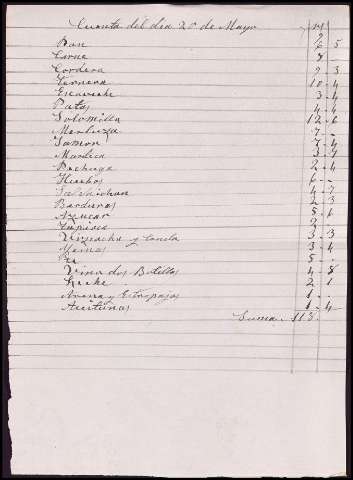 Cuenta del dia 20 de Mayo
Pan 6 5
Carne 8 -
Cordero 9 3
Ternera 10 4
Escaveche 3 4
Patos 4 4
Solomillo 12 6
Merluza 7 -
Jamon 7 4
Manteca 3
Pechuga 2 4
Huebos 6 -
Salchichon 4 7
Barduras 2 3
Azucar 5 6
2 -
y Canela 3 3
3 4
5 -
Vino dos Botellas 4 8
Leche 2 1
Arena y Estropajos 1 -
Aceitunas 1 4
Suma 113